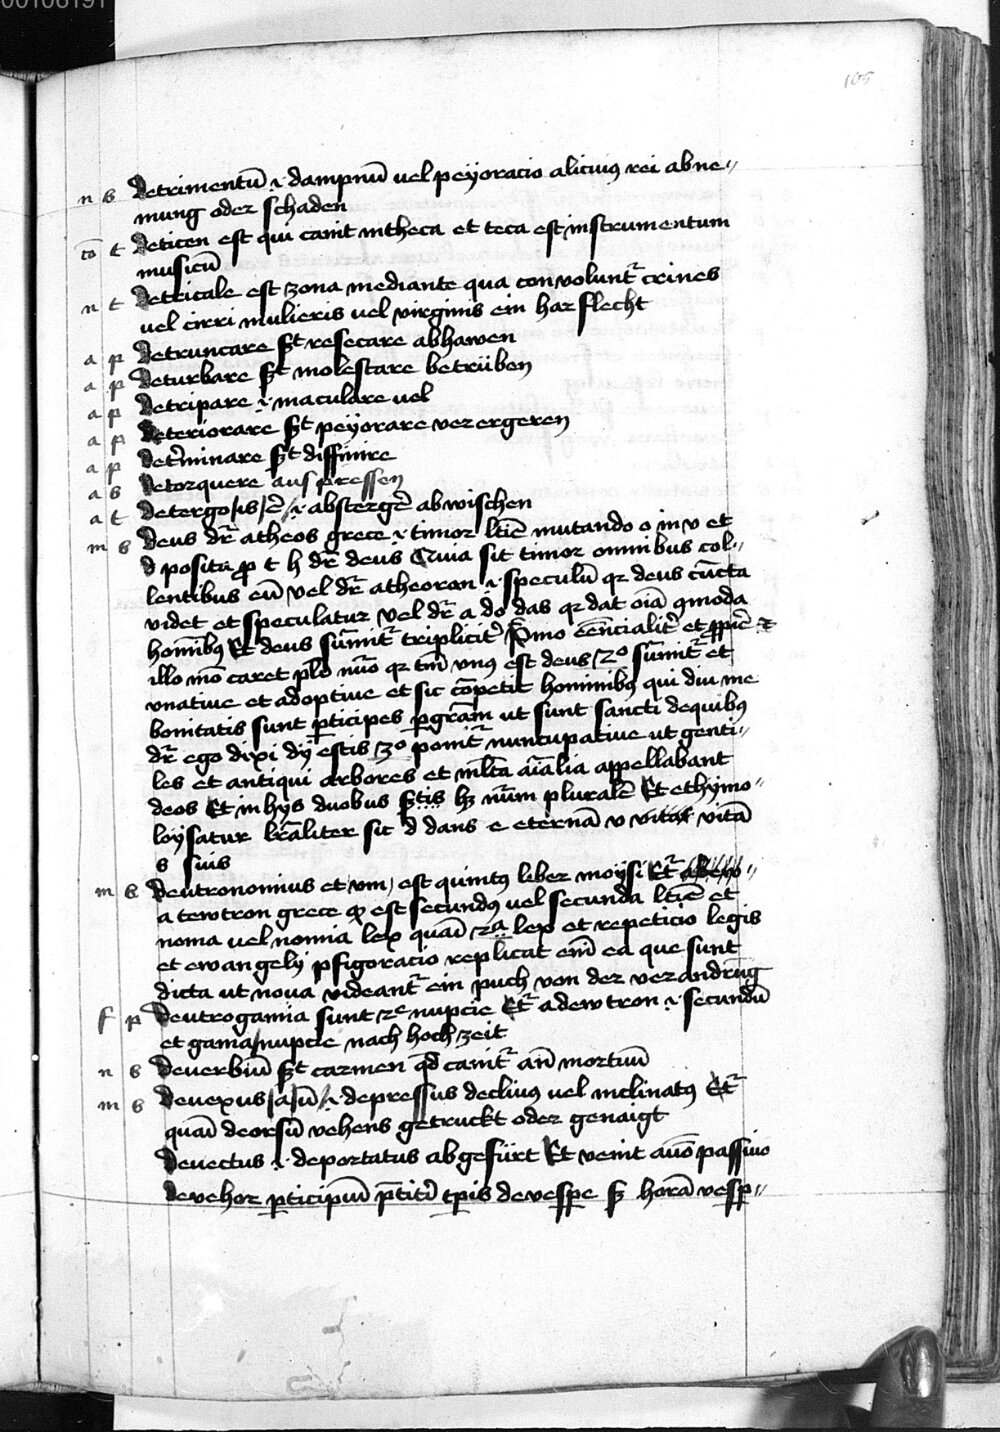 00106191
105
n s Detrimentū .i. dampnū uel peyoracio alicuius rei abne⸗
mung oder schaden
cō t Deticen est qui canit in theca et teca est instrumentum
musicū
n t Detricale est zona mediante qua convolunt͛ crines
uel cirri mulieris uel virginis ein har flecht
a p Detruncare s̄t resecare abhawen
a p Deturbare s̄t molestare betrüben
a p Detripare .i. maculare uel
a p Deteriorare s̄t peyorare verergeren
a p Det͛minare s̄t diffinire
a s Detorquere aus pressen
a t Detergo/is/e͛/.i. absterge͛ abwischen
m s Deus dr̄ atheos grece .i. timor lt̄ie mutando o in v et
d posita ꝓ t h dr̄ deus Quia sit timor omnibus col⸗
lentibus eū vel dr̄ atheoron .i. speculū qꝛ deus cūcta
videt et speculatur vel dr̄ a do das qꝛ dat oīa qmoda
homībꝰ Et deus sūmit͛ triplicit͛ Pͥmo eēncialit͛ et ꝓpͥe et
illo mō caret pl̄o nūo qꝛ tm̄ vnꝰ est deus / 2º sūmit͛ et
vnative et adoptive et sic cōpetit hominibꝰ qui diuine
bonitatis sunt ꝑticipes ꝑ gr̄am ut sunt sancti de quibꝰ
dr̄ ego dixi dij estis 3º ponit͛ nuncupative ut genti⸗
les et antiqui arbores et ml̄ta aīalia appellabant
deos Et in hys duobus s̄tis hꝫ nūm pluralē Et ethymo⸗
loysatur lr̄aliter sic d dans e eternā v vitā
s suis
m s Deutronomius et /um/ est quintꝰ liber moysi Et͛
a tewtron grece qd̄ est secundꝰ vel secunda lt̄ie et
noma uel nomia lex quasi 2ª lex et repeticio legis
et ewangelij p̄figoracio replicat em̄ ea que sunt
dicta ut noua videant͛ ein puch von der verandrūg
f p Deutrogamia sunt 2e nupcie Et͛ a dewtron .i. secundū
et gama/nupcie nach hochzeit
n s Deuerbiū s̄t carmen qd̄ canit͛ an̄ mortuū
m s Deuexus/a/ū/.i. depressus decliuus vel inclinatꝰ Et͛
quasi deorsū vehens getruckt oder genaigt
Deuectus .i. deportatus abgefürt Et venit a v͛bo passiuo
devehor ꝑticipiū p̄titi tp̄is de vesꝑe s̄ horā vesꝑ⸗